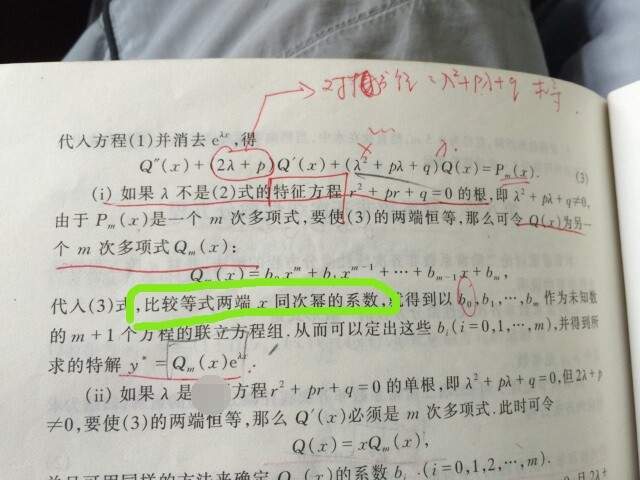 λ²+pλ+q
代入方程(1)并消去 e^{λx},得
Q″(x)+(2λ+p)Q′(x)+(λ²+pλ+q)Q(x)=P_m(x). (3)
(i) 如果 λ 不是(2)式的特征方程 r²+pr+q=0 的根,即 λ²+pλ+q≠0,
由于 P_m(x)是一个 m 次多项式,要使(3)的两端恒等,那么可令 Q(x)为另一
个 m 次多项式 Q_m(x):
Q_m(x)=b₀x^m+b₁x^{m-1}+⋯+b_{m-1}x+b_m,
代入(3)式,比较等式两端 x 同次幂的系数,就得到以 b₀,b₁,⋯,b_m 作为未知数
的 m+1 个方程的联立方程组.从而可以定出这些 b_i(i=0,1,⋯,m),并得到所
求的特解 y*=Q_m(x)e^{λx}.
(ii) 如果 λ 是 方程 r²+pr+q=0 的单根,即 λ²+pλ+q=0,但2λ+p
≠0,要使(3)的两端恒等,那么 Q′(x)必须是 m 次多项式.此时可令
Q(x)=xQ_m(x),
并且可用同样的方法来确定 Q_m(x)的系数 b_i (i=0,1,2,⋯,m).